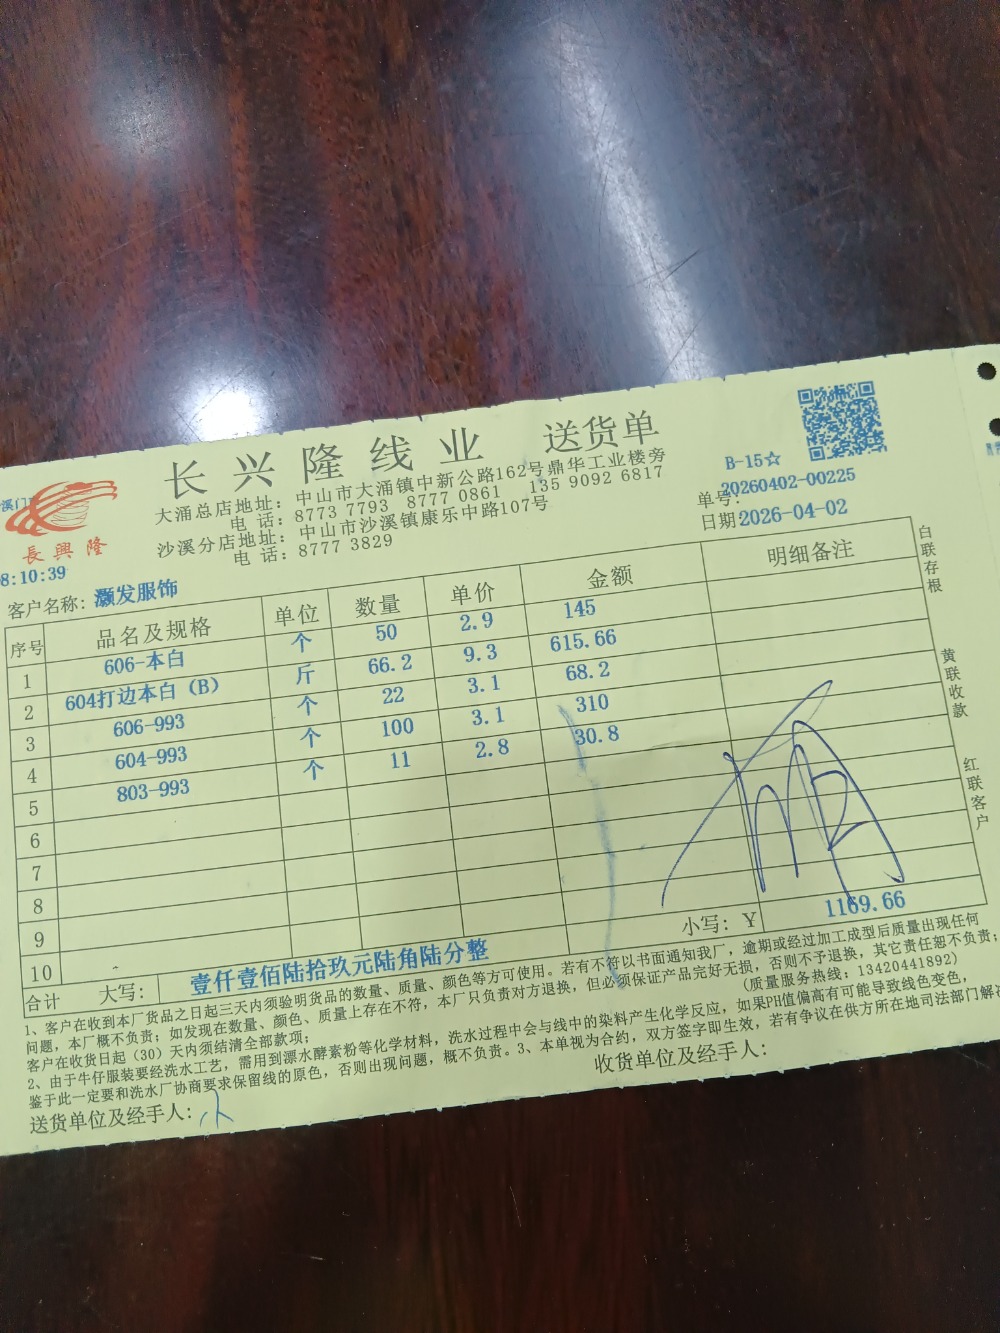 长兴隆线业 送货单
B-15☆
大涌总店地址：中山市大涌镇中新公路162号鼎华工业楼旁
电话：8773 7793 8777 0861 135 9092 6817
沙溪分店地址：中山市沙溪镇康乐中路107号
电话：8777 3829
单号：20260402-00225
日期：2026-04-02
溪门
長興隆
8:10:39
客户名称：灏发服饰
序号 品名及规格 单位 数量 单价 金额 明细备注
1 606-本白 个 50 2.9 145
2 604打边本白（B） 斤 66.2 9.3 615.66
3 606-993 个 22 3.1 68.2
4 604-993 个 100 3.1 310
5 803-993 个 11 2.8 30.8
6
7
8
9
10
小写：Y 1169.66
合计 大写：壹仟壹佰陆拾玖元陆角陆分整
1、客户在收到本厂货品之日起三天内须验明货品的数量、质量、颜色等方可使用。若有不符以书面通知我厂，逾期或经过加工成型后质量出现任何
问题，本厂概不负责；如发现在数量、颜色、质量上存在不符，本厂只负责对方退换，但必须保证产品完好无损，否则不予退换，其它责任恕不负责；
客户在收货日起（30）天内须结清全部款项；
（质量服务热线：13420441892）
2、由于牛仔服装要经洗水工艺，需用到漂水酵素粉等化学材料，洗水过程中会与线中的染料产生化学反应，如果PH值偏高有可能导致线色变色，
鉴于此一定要和洗水厂协商要求保留线的原色，否则出现问题，概不负责。3、本单视为合约，双方签字即生效，若有争议在供方所在地司法部门解决
送货单位及经手人：
收货单位及经手人：
白联存根
黄联收款
红联客户